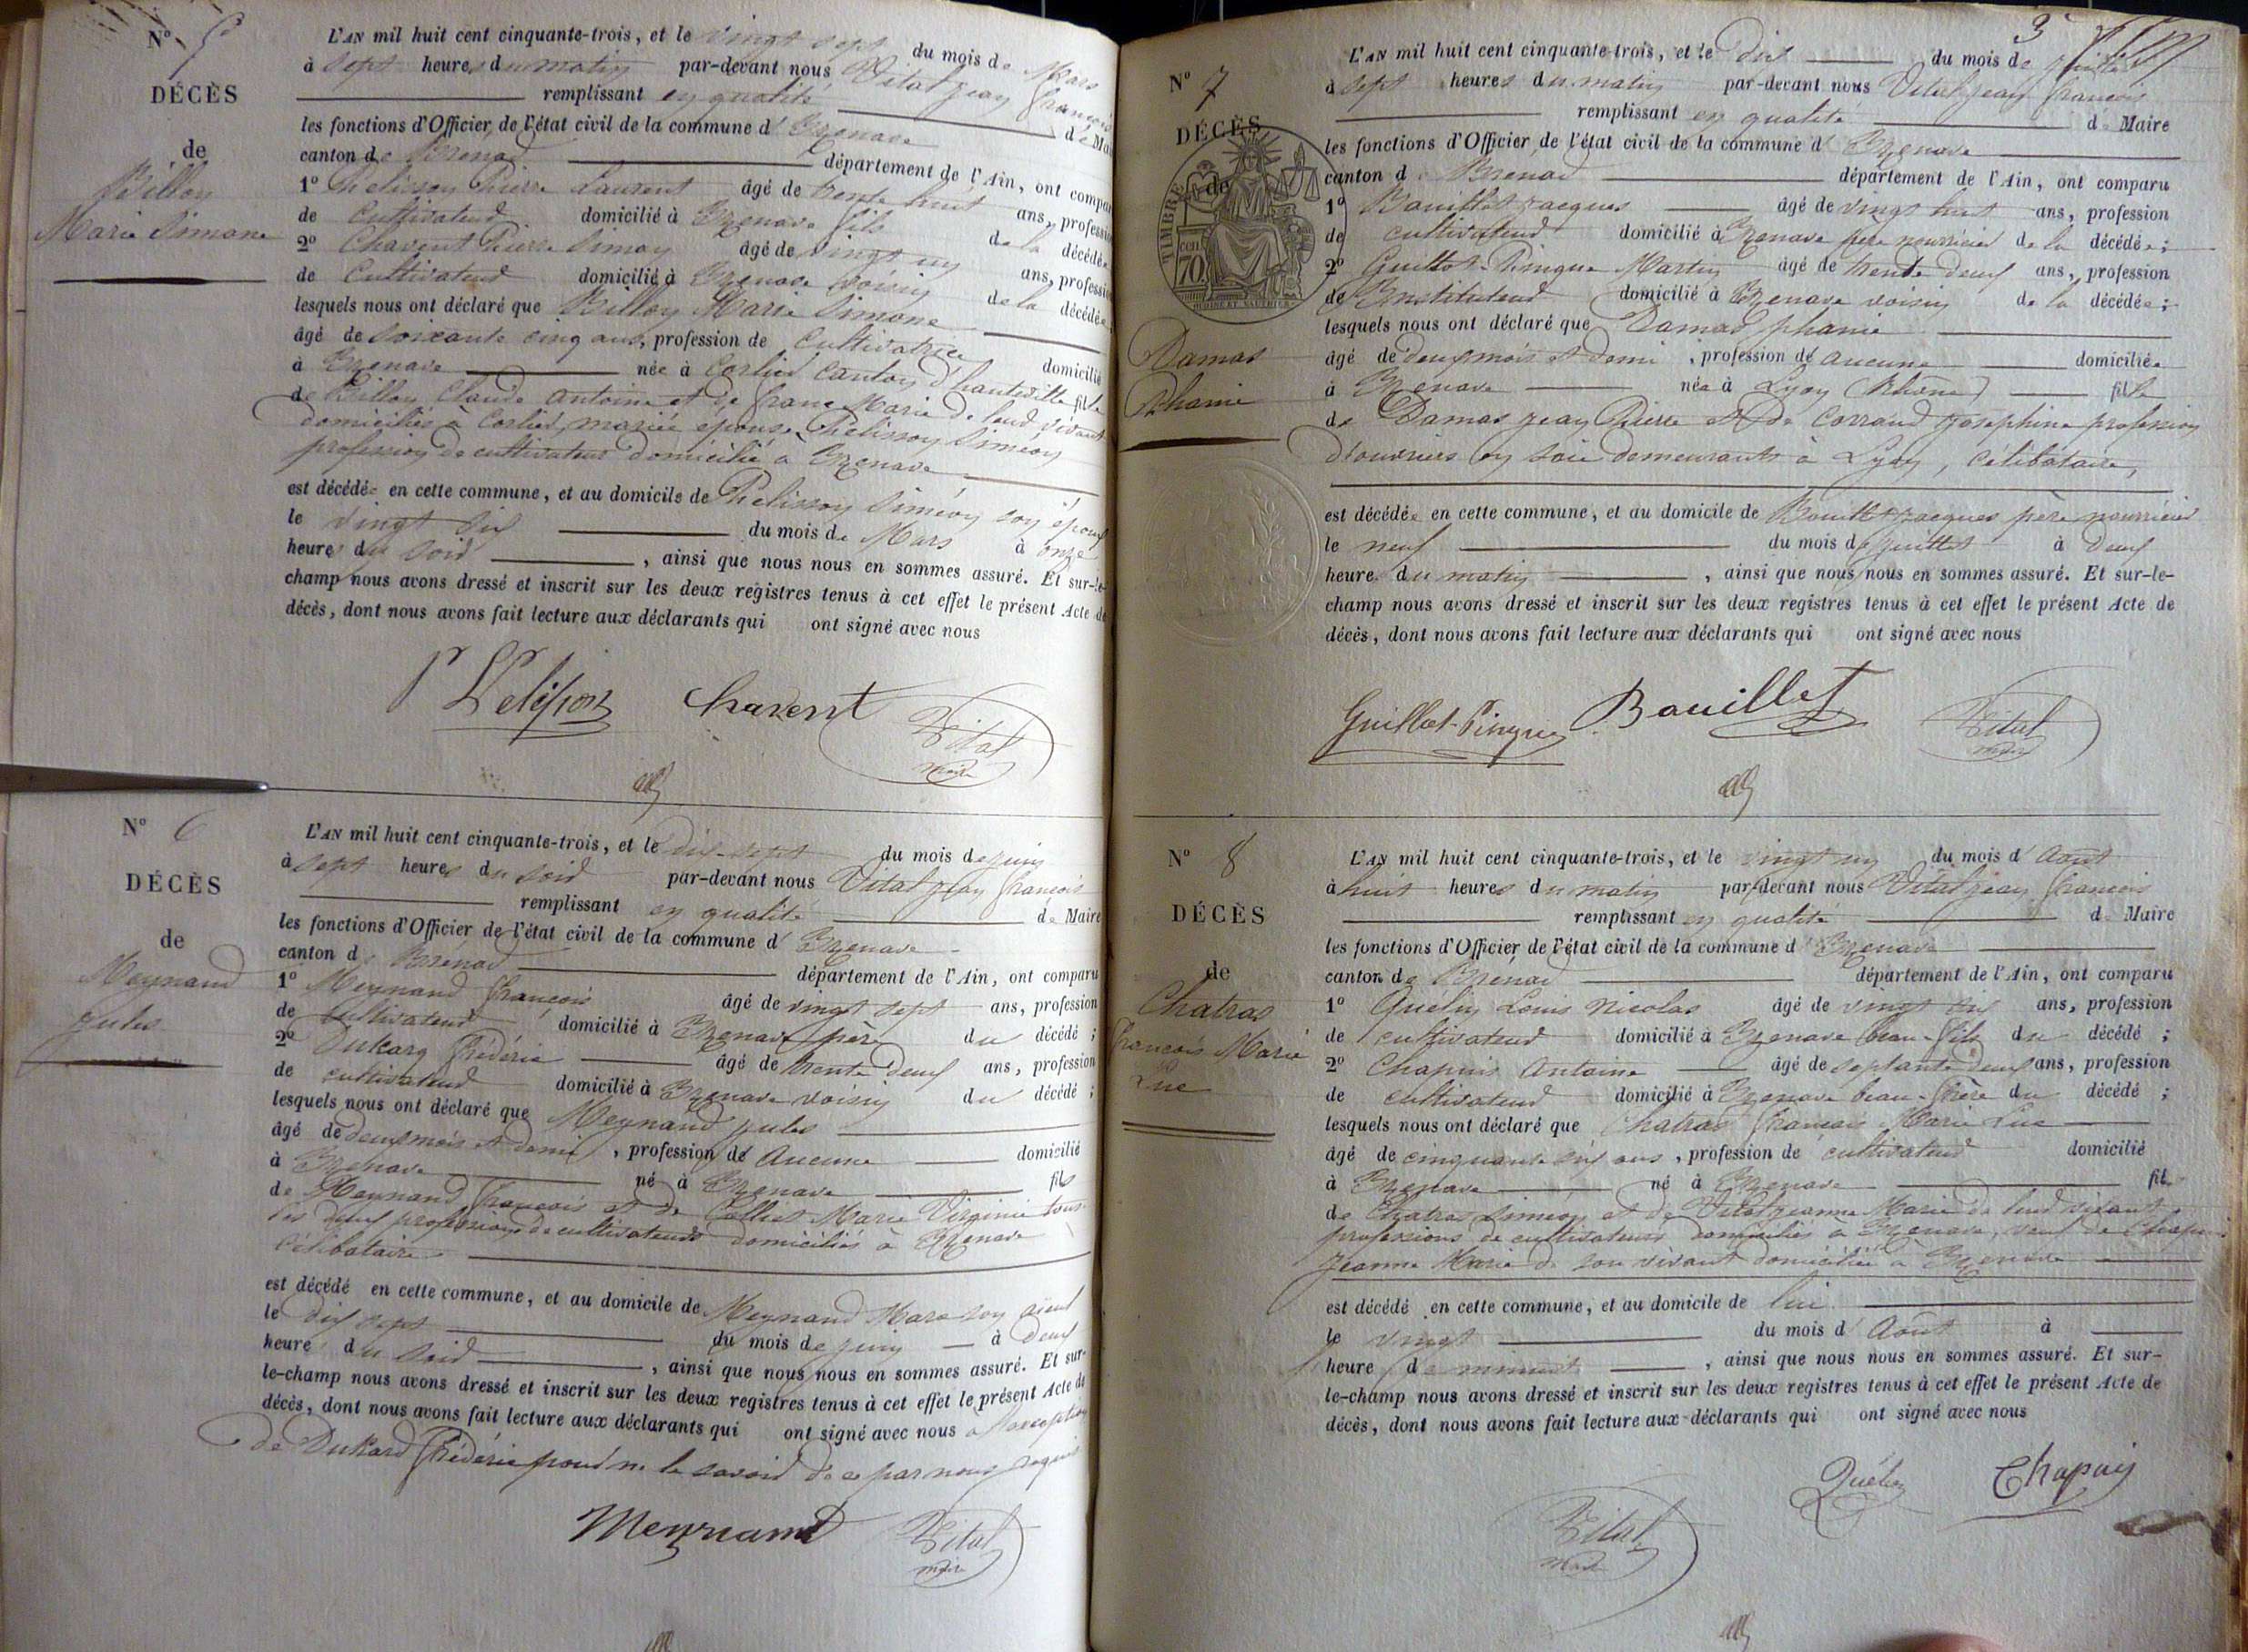 N° 5
DÉCÈS
de
Billon
Marie Simone
L'AN mil huit cent cinquante-trois, et le vingt sept du mois de Mars
à sept heures du matin par-devant nous Vital jean françois
remplissant en qualité de Maire
les fonctions d'Officier de l'état civil de la commune d' Izenave
canton de Brenod département de l'Ain, ont comparu
1° Pelisson Pierre Laurent âgé de trente huit ans, profession
de Cultivateur domicilié à Izenave fils de la décédée
2° Chavent Pierre Simon âgé de vingt un ans, profession
de Cultivateur domicilié à Izenave voisin de la décédée
lesquels nous ont déclaré que Billon Marie Simone
âgé de soixante cinq ans, profession de Cultivatrice domicilié
à Izenave née à Corlier Canton d'hauteville fille
de Billon Claude Antoine et de franc Marie de leur vivant
domiciliés à Corlier, mariée épouse Pelisson Siméon
profession de cultivateur domicilié à Izenave
est décédée en cette commune, et au domicile de Pelisson Siméon son époux
le vingt six du mois de Mars à onze
heures du soir , ainsi que nous nous en sommes assuré. Et sur-le-
champ nous avons dressé et inscrit sur les deux registres tenus à cet effet le présent Acte de
décès, dont nous avons fait lecture aux déclarants qui ont signé avec nous
P L Pelisson Chavent Vital
maire
N° 6
DÉCÈS
de
Meynand
jules
L'AN mil huit cent cinquante-trois, et le dix-sept du mois de juin
à sept heures du soir par-devant nous Vital jean françois
remplissant en qualité de Maire
les fonctions d'Officier de l'état civil de la commune d' Izenave
canton de Brenod département de l'Ain, ont comparu
1° Meynand françois âgé de vingt sept ans, profession
de cultivateur domicilié à Izenave père du décédé ;
2° Dukarq frédéric âgé de trente deux ans, profession
de cultivateur domicilié à Izenave voisin du décédé ;
lesquels nous ont déclaré que Meynand jules
âgé de deux mois et demi , profession de Aucune domicilié
à Izenave né à Izenave fils
de Meynand françois et de Collet Marie Virginie tous
les deux professions de cultivateurs domiciliés à Izenave
célibataire
est décédé en cette commune, et au domicile de Meynand Marc son aïeul
le dix sept du mois de juin à deux
heures du soir , ainsi que nous nous en sommes assuré. Et sur-
le-champ nous avons dressé et inscrit sur les deux registres tenus à cet effet le présent Acte de
décès, dont nous avons fait lecture aux déclarants qui ont signé avec nous a l'exception
de Dukard frédéric pour ne le savoir de ce par nous requis
Meynand Vital
maire
3
N° 7
DÉCÈS
de
TIMBRE
cen
70
Damas
Phanie
L'AN mil huit cent cinquante-trois, et le dix du mois de juillet
à sept heures du matin par-devant nous Vital jean françois
remplissant en qualité de Maire
les fonctions d'Officier de l'état civil de la commune d' Izenave
canton de Brenod département de l'Ain, ont comparu
1° Bouillet jacques âgé de vingt huit ans, profession
de cultivateur domicilié à Izenave père nourricier de la décédée ;
2° Guillot-Pingue Martin âgé de trente deux ans, profession
de Instituteur domicilié à Izenave voisin de la décédée ;
lesquels nous ont déclaré que Damas phanie
âgé de deux mois et demi , profession de aucune domiciliée
à Izenave née à Lyon (Rhône) fille
de Damas jean Pierre et de Corraud josephine profession
d'ouvriers en soie demeurants à Lyon, célibataire,
est décédée en cette commune, et au domicile de Bouillet jacques père nourricier
le neuf du mois de juillet à deux
heures du matin , ainsi que nous nous en sommes assuré. Et sur-le-
champ nous avons dressé et inscrit sur les deux registres tenus à cet effet le présent Acte de
décès, dont nous avons fait lecture aux déclarants qui ont signé avec nous
Guillot-Pingue Bouillet Vital
maire
N° 8
DÉCÈS
de
Chatras
françois Marie
Luc
L'AN mil huit cent cinquante-trois, et le vingt un du mois d' Aout
à huit heures du matin par-devant nous Vital jean françois
remplissant en qualité de Maire
les fonctions d'Officier de l'état civil de la commune d' Izenave
canton de Brenod département de l'Ain, ont comparu
1° Quelin Louis Nicolas âgé de vingt six ans, profession
de cultivateur domicilié à Izenave beau-fils du décédé ;
2° Chapuis Antoine âgé de septante deux ans, profession
de cultivateur domicilié à Izenave beau-frère du décédé ;
lesquels nous ont déclaré que Chatras françois Marie Luc
âgé de cinquante six ans , profession de cultivateur domicilié
à Izenave né à Izenave fils
de Chatras Siméon et de Vital jeanne Marie de leur vivant
professions de cultivateurs domiciliés à Izenave, veuf de Chapuis
jeanne Marie de son vivant domiciliée à Izenave
est décédé en cette commune, et au domicile de lui
le vingt du mois d' Aout à
heure de minuit , ainsi que nous nous en sommes assuré. Et sur-
le-champ nous avons dressé et inscrit sur les deux registres tenus à cet effet le présent Acte de
décès, dont nous avons fait lecture aux déclarants qui ont signé avec nous
Quélin Chapuis
Vital
maire